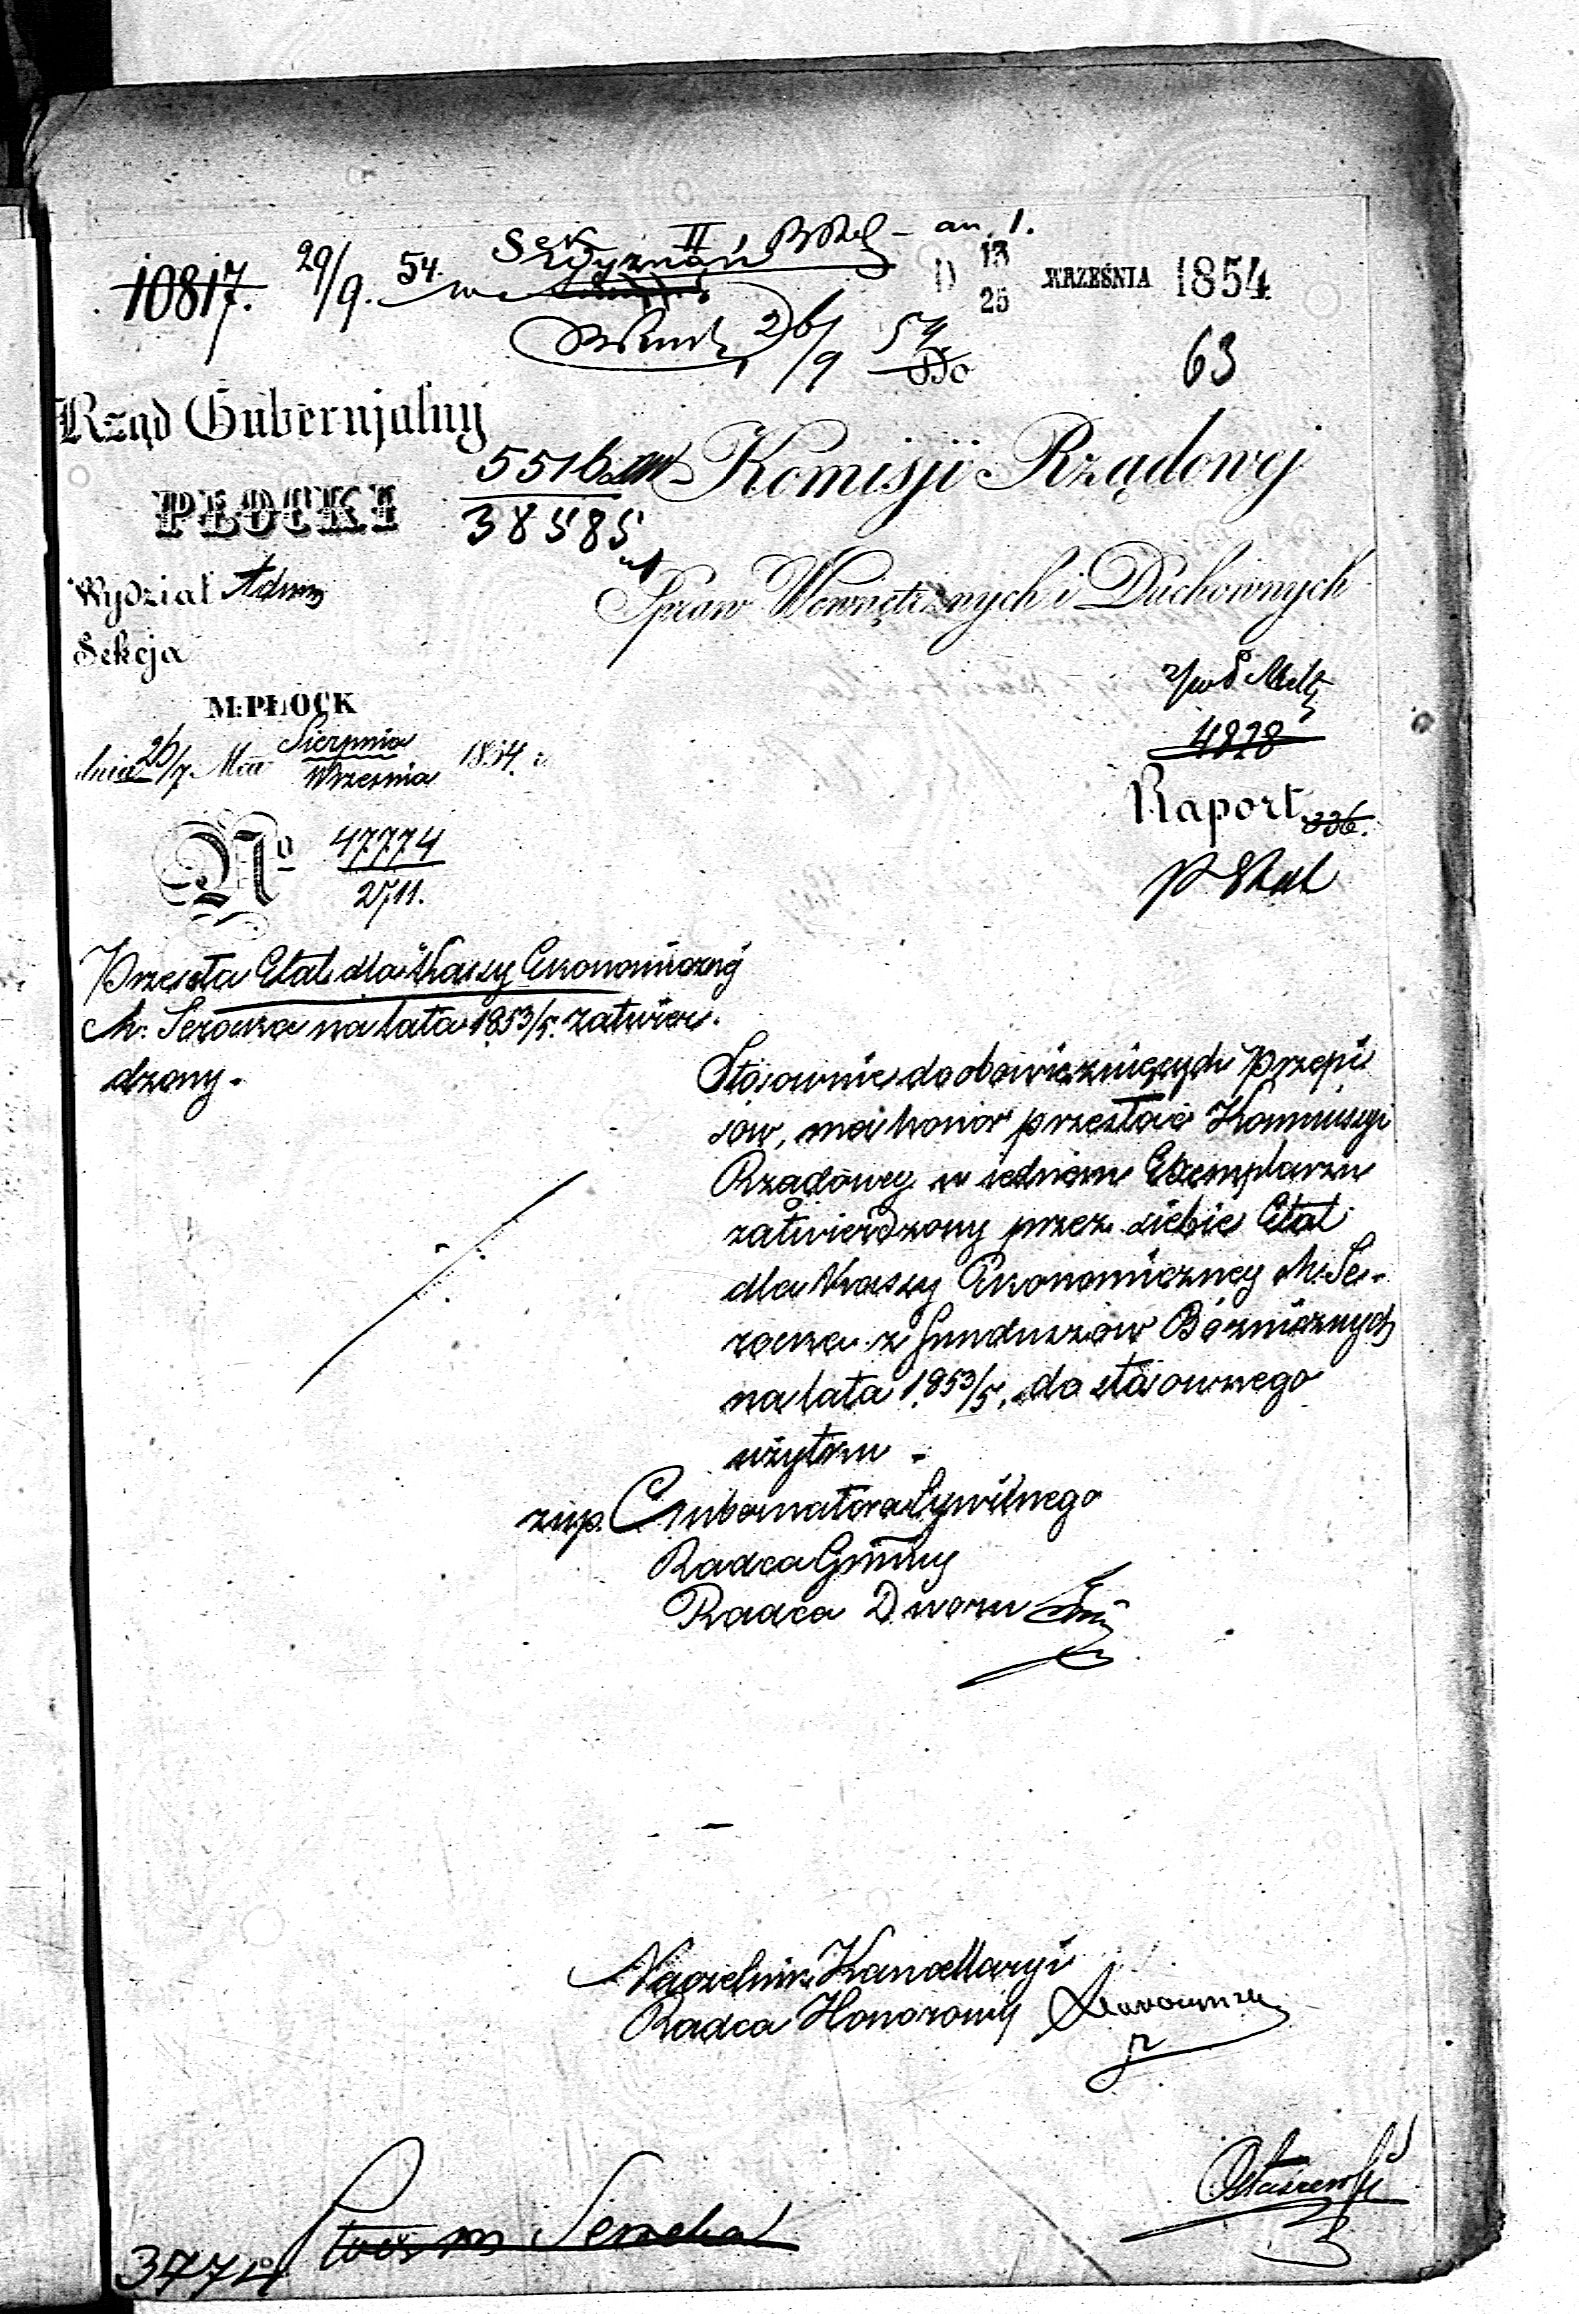 10817. 29/9. 54.
Sek II an. 1.
D 13/25 WRZEŚNIA 1854
26/9 54
63
Do
Rząd Gubernjalny
PŁOCKI
5516
38585
Komisji Rządowej
Spraw Wewnętrznych i Duchownych
Wydział Adm
Sekcja
M: PŁOCK
dnia 26/7 Mca Sierpnia/Września 1854 r.
4828
Raport
336.
No 47774
2711.
Przesyła Etat dla Kassy Ekonomiczney
M. Serocka na lata 1853/5. zatwier-
dzony.
Stosownie do obowiązuiących przepi
sów, ma honor przesłać Kommissyi
Rządowey w iednem Exemplarzu
zatwierdzony przez siebie Etat
dla Kassy Ekonomiczney M. Se-
rocka z funduszów Bóżnicznych
na lata 1853/5, do stosownego
użytku.
zup. Gubernatora Cywilnego
Radca Gubny
Radca Dworu
Naczelnik Kancellaryi
Radca Honorowy
Ostaszewski
3774